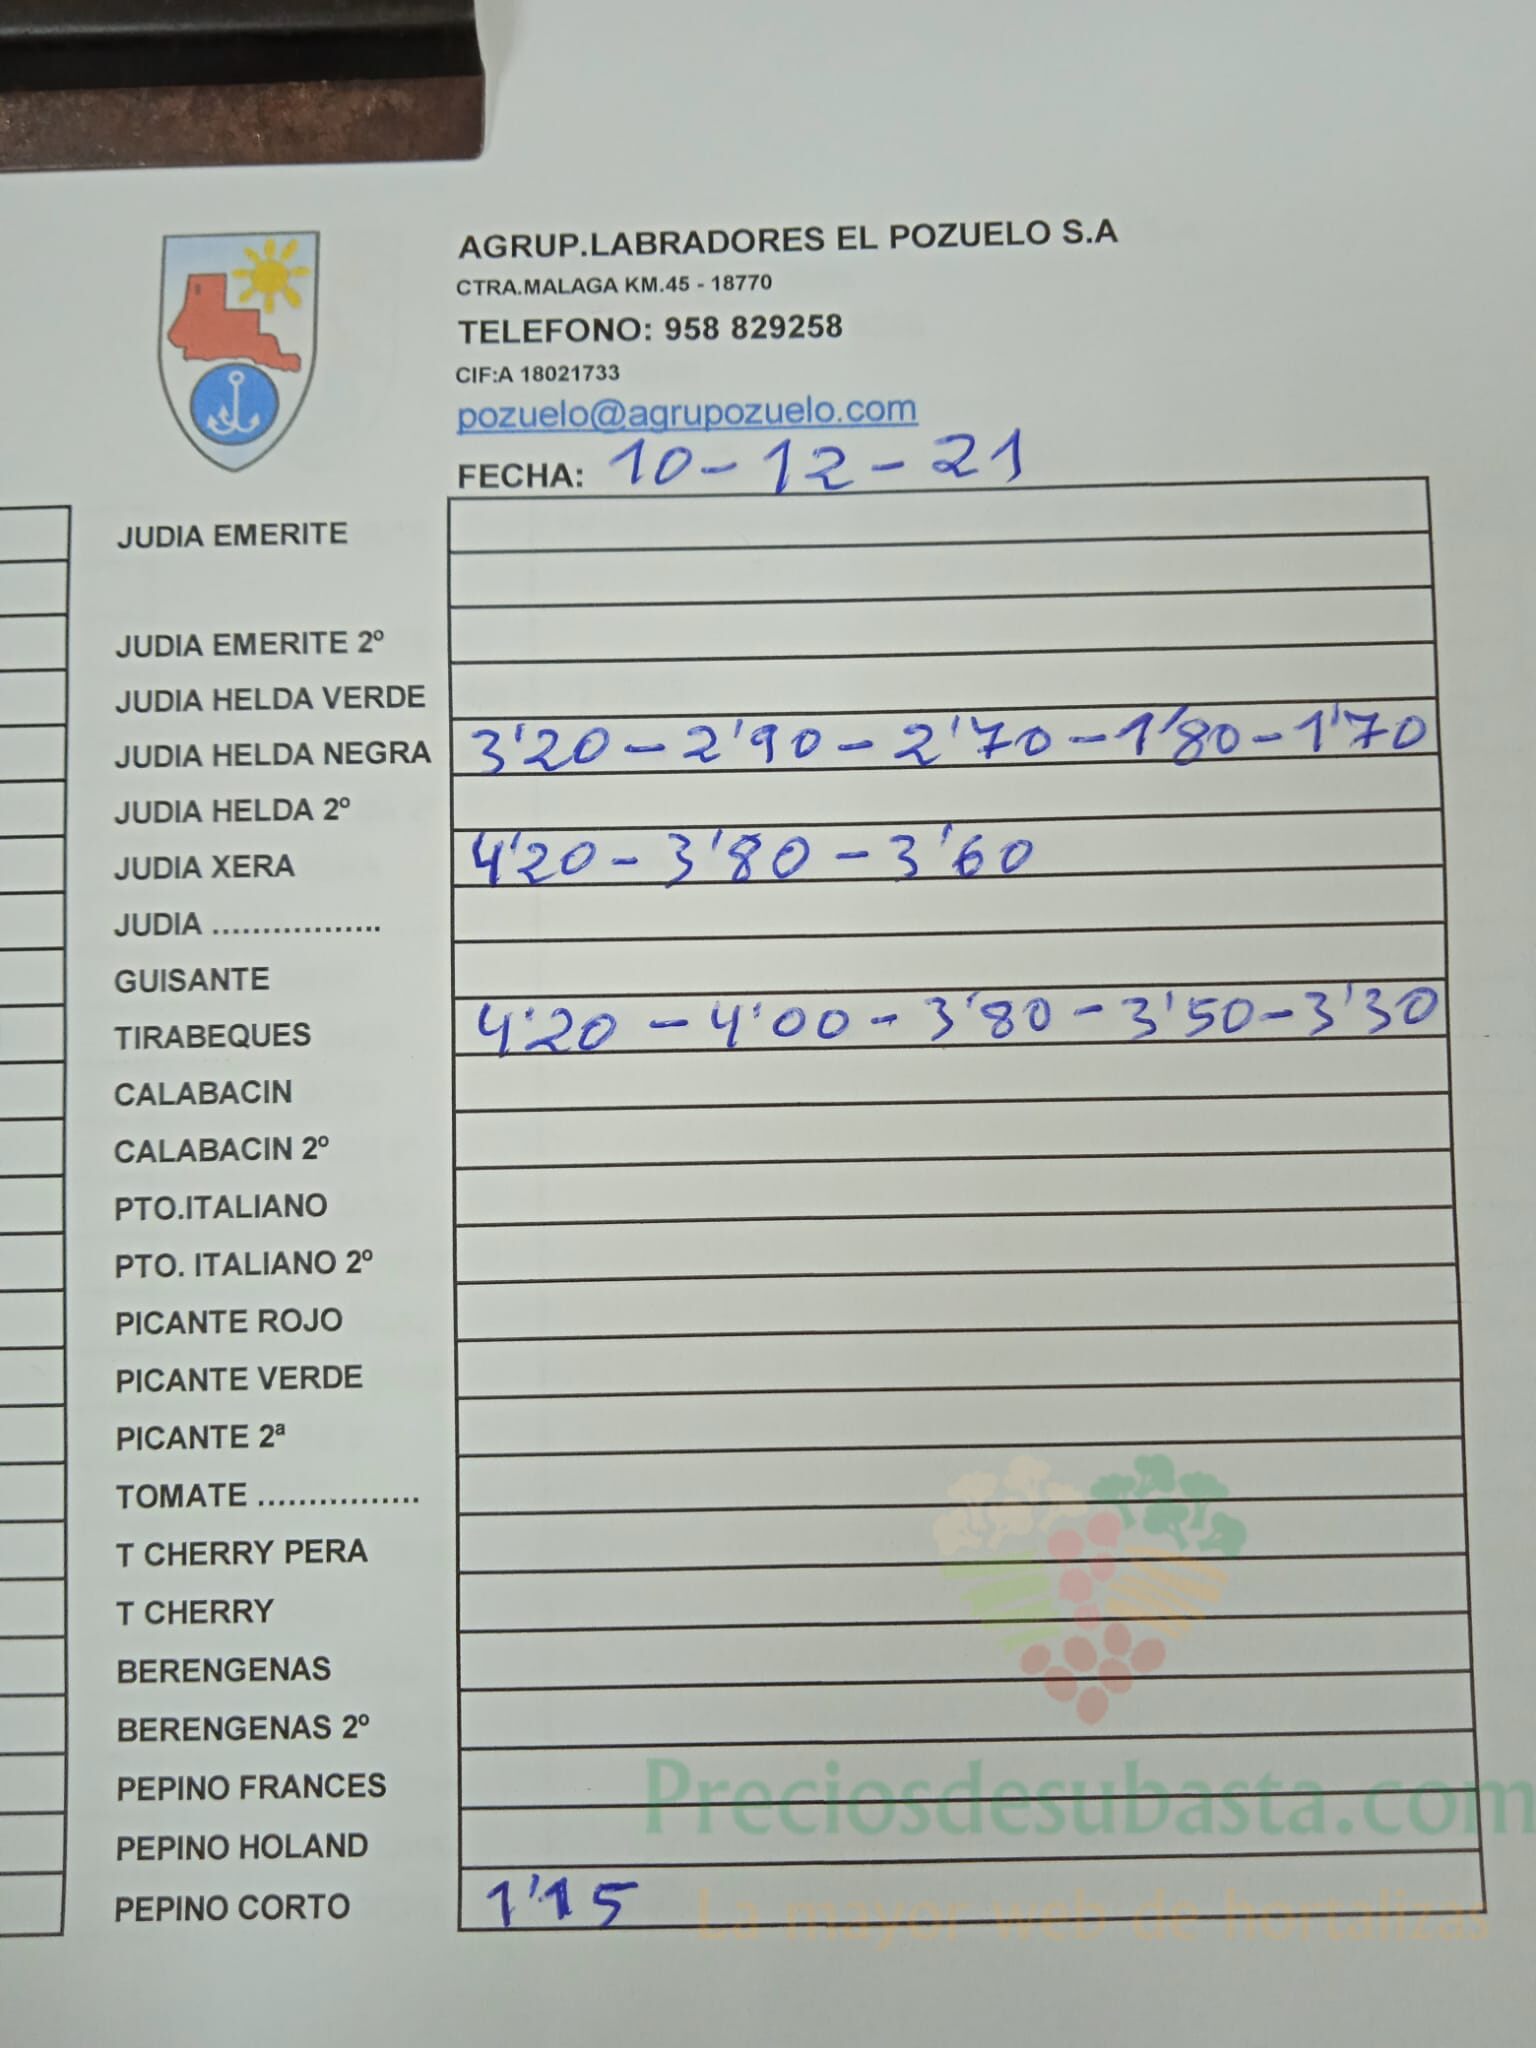 AGRUP.LABRADORES EL POZUELO S.A
CTRA.MALAGA KM.45 - 18770
TELEFONO: 958 829258
CIF:A 18021733
pozuelo@agrupozuelo.com
FECHA: 10-12-21
JUDIA EMERITE
JUDIA EMERITE 2º
JUDIA HELDA VERDE
JUDIA HELDA NEGRA 3'20-2'90-2'70-1'80-1'70
JUDIA HELDA 2º
JUDIA XERA 4'20-3'80-3'60
JUDIA .................
GUISANTE
TIRABEQUES 4'20-4'00-3'80-3'50-3'30
CALABACIN
CALABACIN 2º
PTO.ITALIANO
PTO. ITALIANO 2º
PICANTE ROJO
PICANTE VERDE
PICANTE 2ª
TOMATE ................
T CHERRY PERA
T CHERRY
BERENGENAS
BERENGENAS 2º
PEPINO FRANCES
Preciosdesubasta.com
PEPINO HOLAND
PEPINO CORTO 1'15
La mayor web de hortalizas